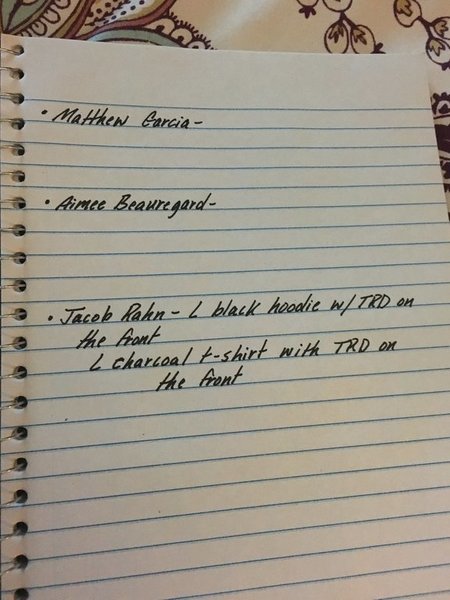 • Matthew Garcia-
• Aimee Beauregard-
• Jacob Rahn - L black hoodie w/ TRD on
the front
L charcoal t-shirt with TRD on
the front